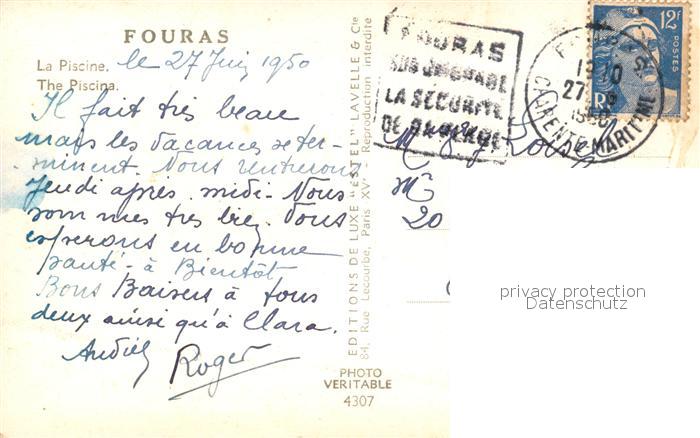 FOURAS
La Piscine.
The Piscina.
le 27 Juin 1950
Il fait très beau
mais les vacances se ter-
minent. Nous rentrerons
Jeudi après. midi. Nous
som mes très bien. Vous
esperons en bonne
santé - à Bientôt
Bons Baisers à tous
deux ainsi qu'à Clara.
Roger
EDITIONS DE LUXE "ESTEL" LAVELLE & Cie
84, Rue Lecourbe, Paris XVe - Reproduction interdite
PHOTO
VERITABLE
4307
FOURAS
LA SÉCURITÉ
DE
12F
POSTES
RF
27
1950
CHARENTE MARITIME
20
privacy protection
Datenschutz